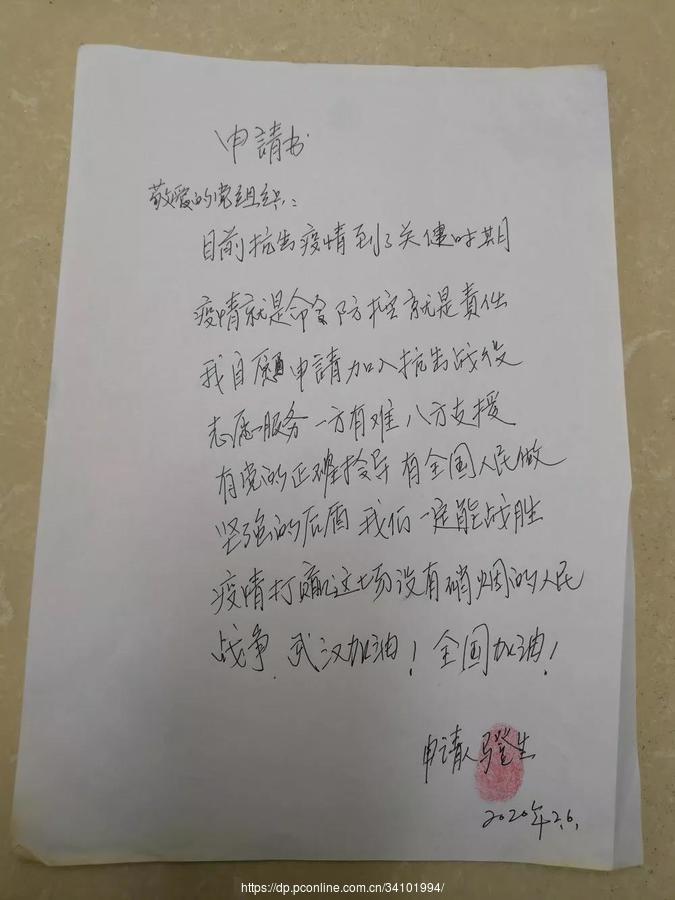 申請书
敬爱的党组织：
目前抗击疫情到了关健时期
疫情就是命令防控就是責任
我自愿申請加入抗击战役
志愿服务一方有难八方支援
有党的正确领导有全国人民做
坚强的后盾我们一定能战胜
疫情打赢这场没有硝烟的人民
战争.武汉加油！全国加油！
申请人马登生
2020年2.6.
https://dp.pconline.com.cn/34101994/